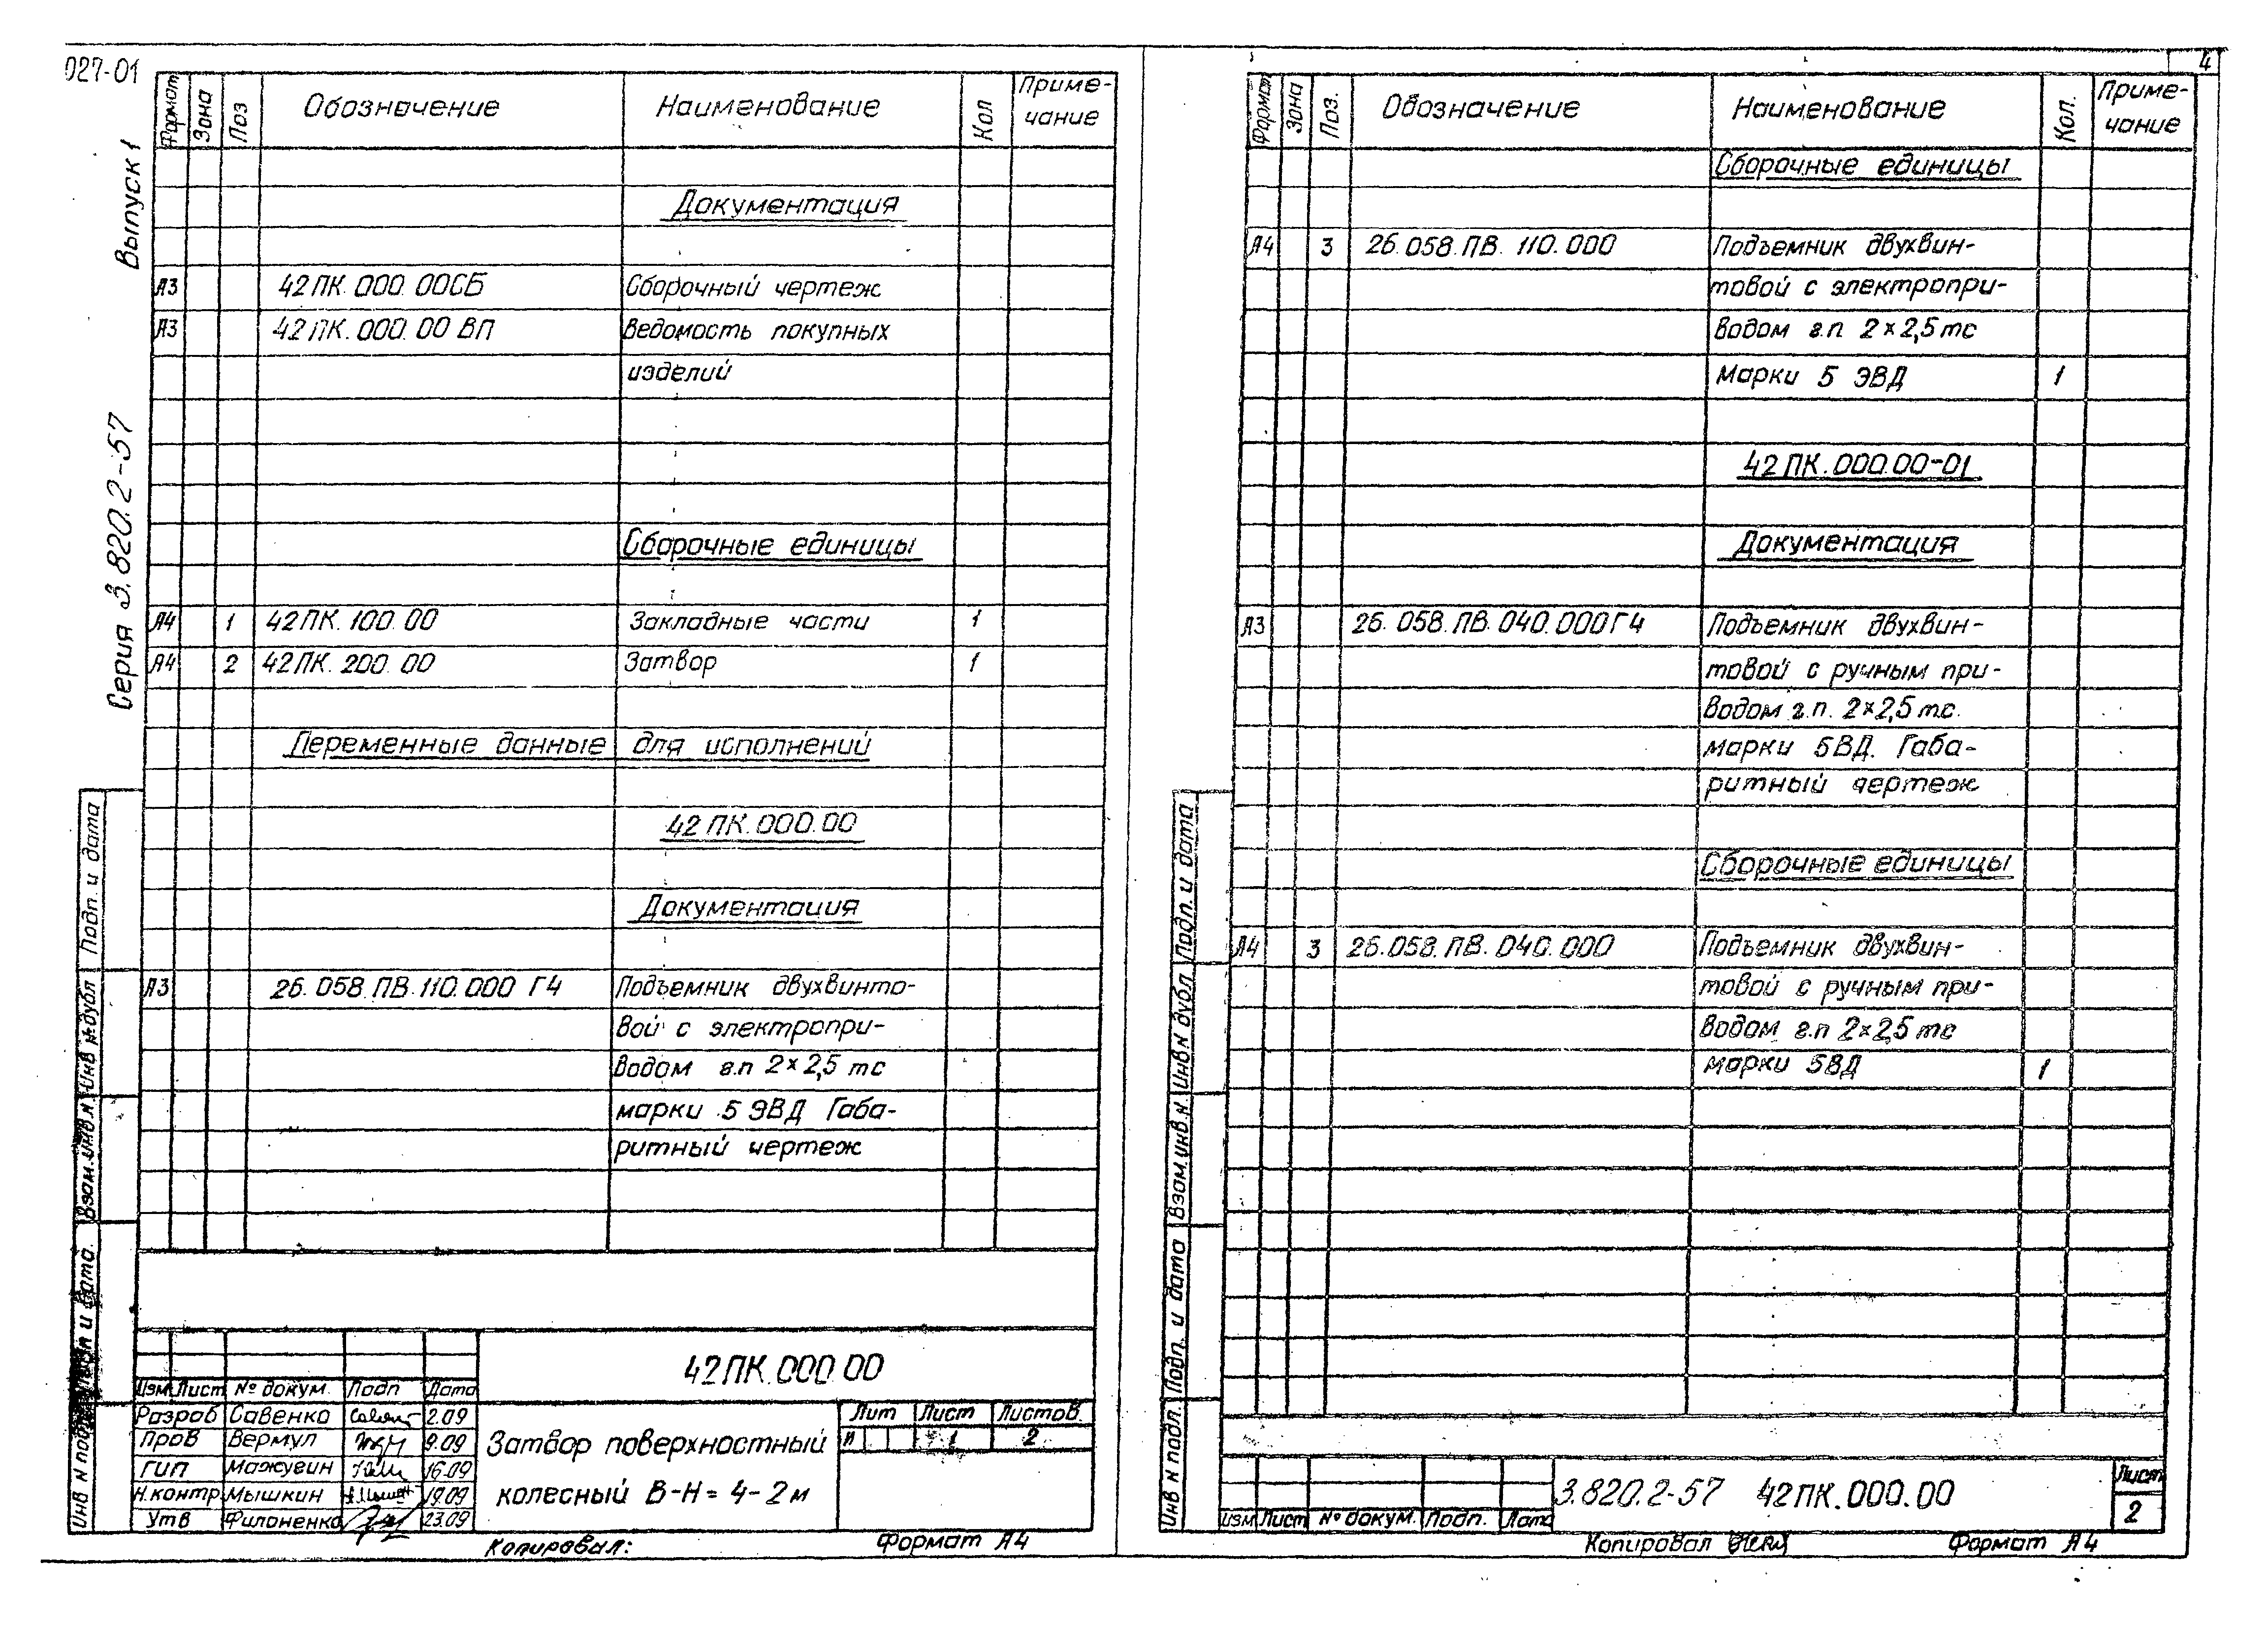 027-01
4
Серия 3.820.2-57 Выпуск 1
Формат Зона Поз Обозначение Наименование Кол Приме-
чание
Документация
А3 42ПК.000.00СБ Сборочный чертеж
А3 42ПК.000.00 ВП Ведомость покупных
изделий
Сборочные единицы
А4 1 42ПК.100.00 Закладные части 1
А4 2 42ПК.200.00 Затвор 1
Переменные данные для исполнений
42 ПК.000.00
Документация
А3 26.058.ПВ.110.000 Г4 Подъемник двухвинто-
вой с электропри-
водом г.п 2×2,5 тс
марки 5 ЭВД Габа-
ритный чертеж
Инв N подл Подп и дата Взам.инв.N Инв N дубл Подп. и дата
42ПК.000.00
Изм Лист № докум. Подп Дата
Разраб Савенко 2.09
Пров Вермул 9.09
ГИП Мажугин 16.09
Н.контр Мышкин 19.09
Утв Филоненко 23.09
Затвор поверхностный
колесный В-Н = 4-2м
Лит Лист Листов
И 1 2
Копировал: Формат А4
Формат Зона Поз. Обозначение Наименование Кол. Приме-
чание
Сборочные единицы
А4 3 26.058.ПВ.110.000 Подъемник двухвин-
товой с электропри-
водом г.п 2×2,5тс
марки 5 ЭВД 1
42ПК.000.00-01
Документация
А3 26.058.ПВ.040.000Г4 Подъемник двухвин-
товой с ручным при-
водом г.п. 2×2,5 тс.
марки 5ВД. Габа-
ритный чертеж
Сборочные единицы
А4 3 26.058.ПВ.040.000 Подъемник двухвин-
товой с ручным при-
водом г.п 2×2,5 тс
марки 5ВД 1
Инв N подл. Подп. и дата Взам.инв.N. Инв.N дубл Подп. и дата
3.820.2-57 42ПК.000.00
Изм Лист № докум. Подп. Дата
Лист
2
Копировал Формат А4